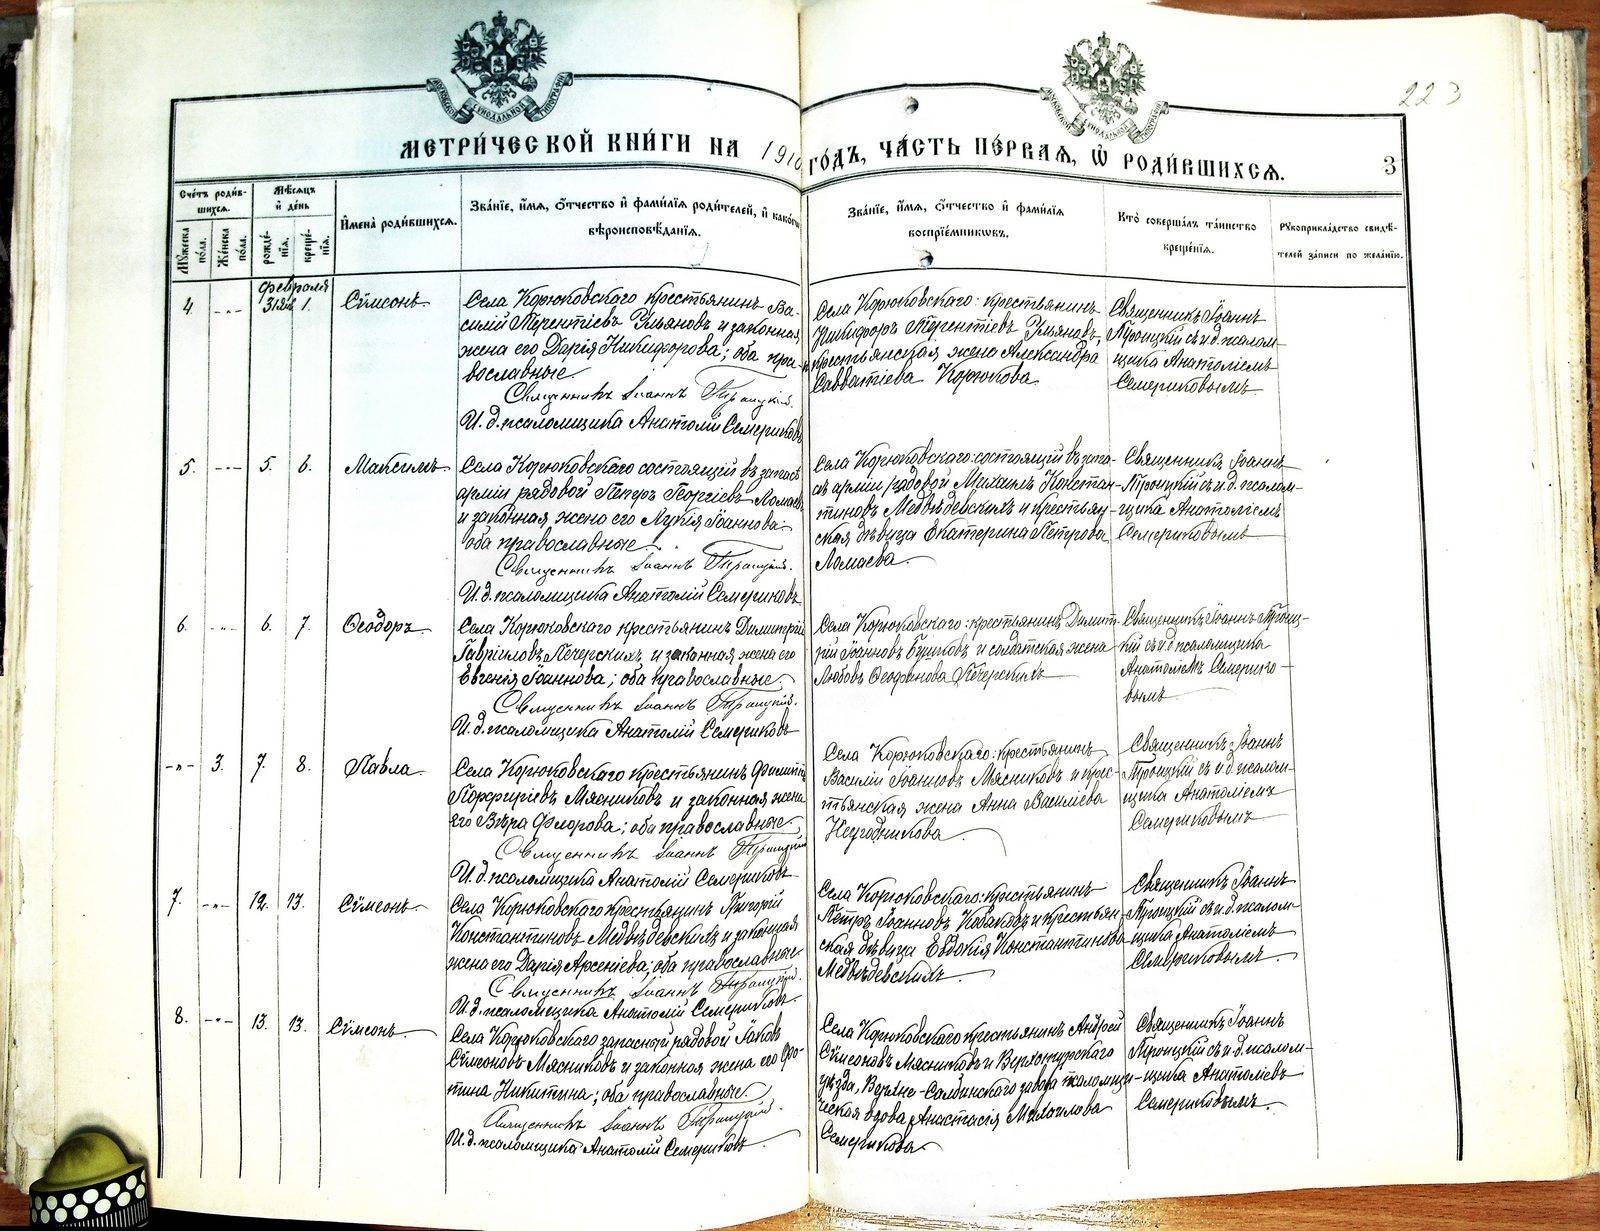 223
МОСКОВСКОЙ СѴНОДАЛЬНОЙ ТИПОГРАФІИ
МОСКОВСКОЙ СѴНОДАЛЬНОЙ ТИПОГРАФІИ
МЕТРИ́ЧЕСКОЙ КНИ́ГИ НА 1910 ГО́ДЪ, ЧА́СТЬ ПЕ́РВАЯ, Ѽ РОДИ́ВШИХСЯ. 3
Сче́тъ роди́в-
шихся.
Мѣ́сяцъ
и҆ де́нь
Мꙋ́жеска по́ла.
Же́нска по́ла.
рожде́-
нїя.
креще́-
нїя.
И҆мена̀ роди́вшихся.
Зва́нїе, и҆́мя, ѻ҆́тчество и҆ фами́лїя роди́телей, и҆ како́гѡ
вѣроисповѣ́данїя.
Зва́нїе, и҆́мя, ѻ҆́тчество и҆ фами́лїя
воспрїе́мникѡвъ.
Кто̀ соверша́лъ та́инство
креще́нїя.
Рꙋкоприкла́дство свидѣ́-
телей за́писи по жела́нїю.
февраля
4. -„- 31 янв. 1. Сѷмеонъ
Села Корюковскаго крестьянинъ Ва-
силій Терентіевъ Ульяновъ и законная
жена его Дарія Никифорова; оба пра-
вославные.
Священникъ Іоаннъ Троицкій.
И. д. псаломщика Анатолій Семериковъ
Села Корюковскаго: крестьянинъ
Никифоръ Терентіевъ Ульяновъ,
крестьянская жена Александра
Савватіева Корюкова
Священникъ Іоаннъ
Троицкій съ и. д. псалом-
щика Анатоліемъ
Семериковымъ
5. -„- 5. 6. Максимъ
Села Корюковскаго состоящій въ запасѣ
арміи рядовой Петръ Георгіевъ Ломаевъ
и законная жена его Лукія Іоаннова
оба православные
Священникъ Іоаннъ Троицкій.
И. д. псаломщика Анатолій Семериковъ
Села Корюковскаго: состоящій въ запа-
сѣ арміи рядовой Михаилъ Констан-
тиновъ Медвѣдевскихъ и крестьян-
ская дѣвица Екатерина Петрова
Ломаева.
Священникъ Іоаннъ
Троицкій съ и. д. псалом-
щика Анатоліемъ
Семериковымъ
6. -„- 6. 7. Ѳеодоръ
Села Корюковскаго крестьянинъ Димитрій
Гавріиловъ Печерскихъ и законная жена его
Евгенія Іоаннова; оба православные
Священникъ Іоаннъ Троицкій.
И. д. псаломщика Анатолій Семериковъ
Села Корюковскаго: крестьянинъ Димит-
рій Іоанновъ Бушковъ и солдатская жена
Любовь Ѳеофанова Печерскихъ
Священникъ Іоаннъ Троиц-
кій съ и. д. псаломщика
Анатоліемъ Семерико-
вымъ
-„- 3. 7. 8. Павла
Села Корюковскаго крестьянинъ Филиппъ
Порфиріевъ Мясниковъ и законная жена
его Вѣра Флорова; оба православные
Священникъ Іоаннъ Троицкій
И. д. псаломщика Анатолій Семериковъ
Села Корюковскаго: крестьянинъ
Василій Іоанновъ Мясниковъ и крес-
тьянская жена Анна Василіева
Неугодникова
Священникъ Іоаннъ
Троицкій съ и. д. псалом-
щика Анатоліемъ
Семериковымъ
7. -„- 12. 13. Сѷмеонъ
Села Корюковскаго крестьянинъ Григорій
Константиновъ Медвѣдевскихъ и законная
жена его Дарія Арсеніева; оба православные
Священникъ Іоаннъ Троицкій.
И. д. псаломщика Анатолій Семериковъ
Села Корюковскаго: крестьянинъ
Петръ Іоанновъ и крестьян-
ская дѣвица Евдокія Константинова
Медвѣдевскихъ
Священникъ Іоаннъ
Троицкій съ и. д. псалом-
щика Анатоліемъ
Семериковымъ.
8. -„- 13. 13. Сѷмеонъ
Села Корюковскаго запасный рядовой Іаковъ
Сѷмеоновъ Мясниковъ и законная жена его Фо-
тина Никитина; оба православные.
Священникъ Іоаннъ Троицкій.
И. д. псаломщика Анатолій Семериковъ
Села Корюковскаго крестьянинъ Андрей
Сѷмеоновъ Мясниковъ и Верхотурскаго
уѣзда, Верхне-Салдинскаго завода псаломщи-
ческая вдова Анастасія
Семерикова
Священникъ Іоаннъ
Троицкій съ и. д. псалом-
щика Анатоліевъ
Семериковымъ.